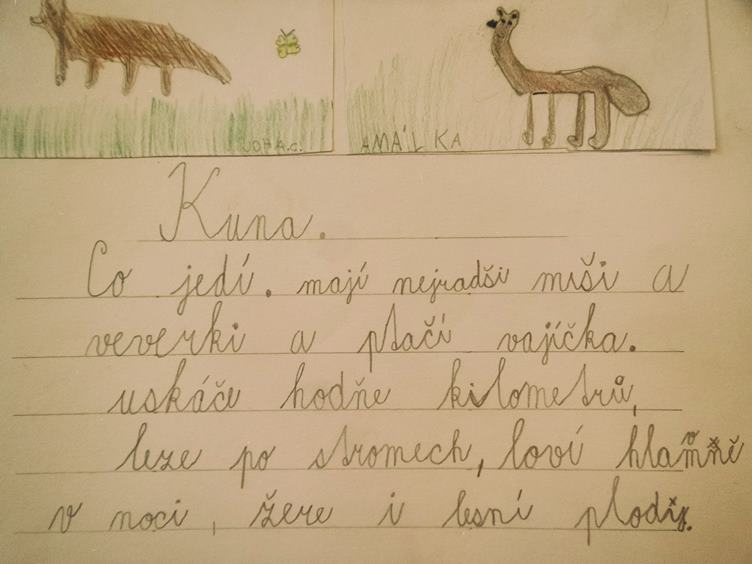 AMÁLKA
Kuna.
Co jedí. mají nejradši miši a
veverki a ptačí vajíčka.
uskáče hodňe kilometrů,
leze po stromech, loví hlavně
v noci, žere i lesní plody.